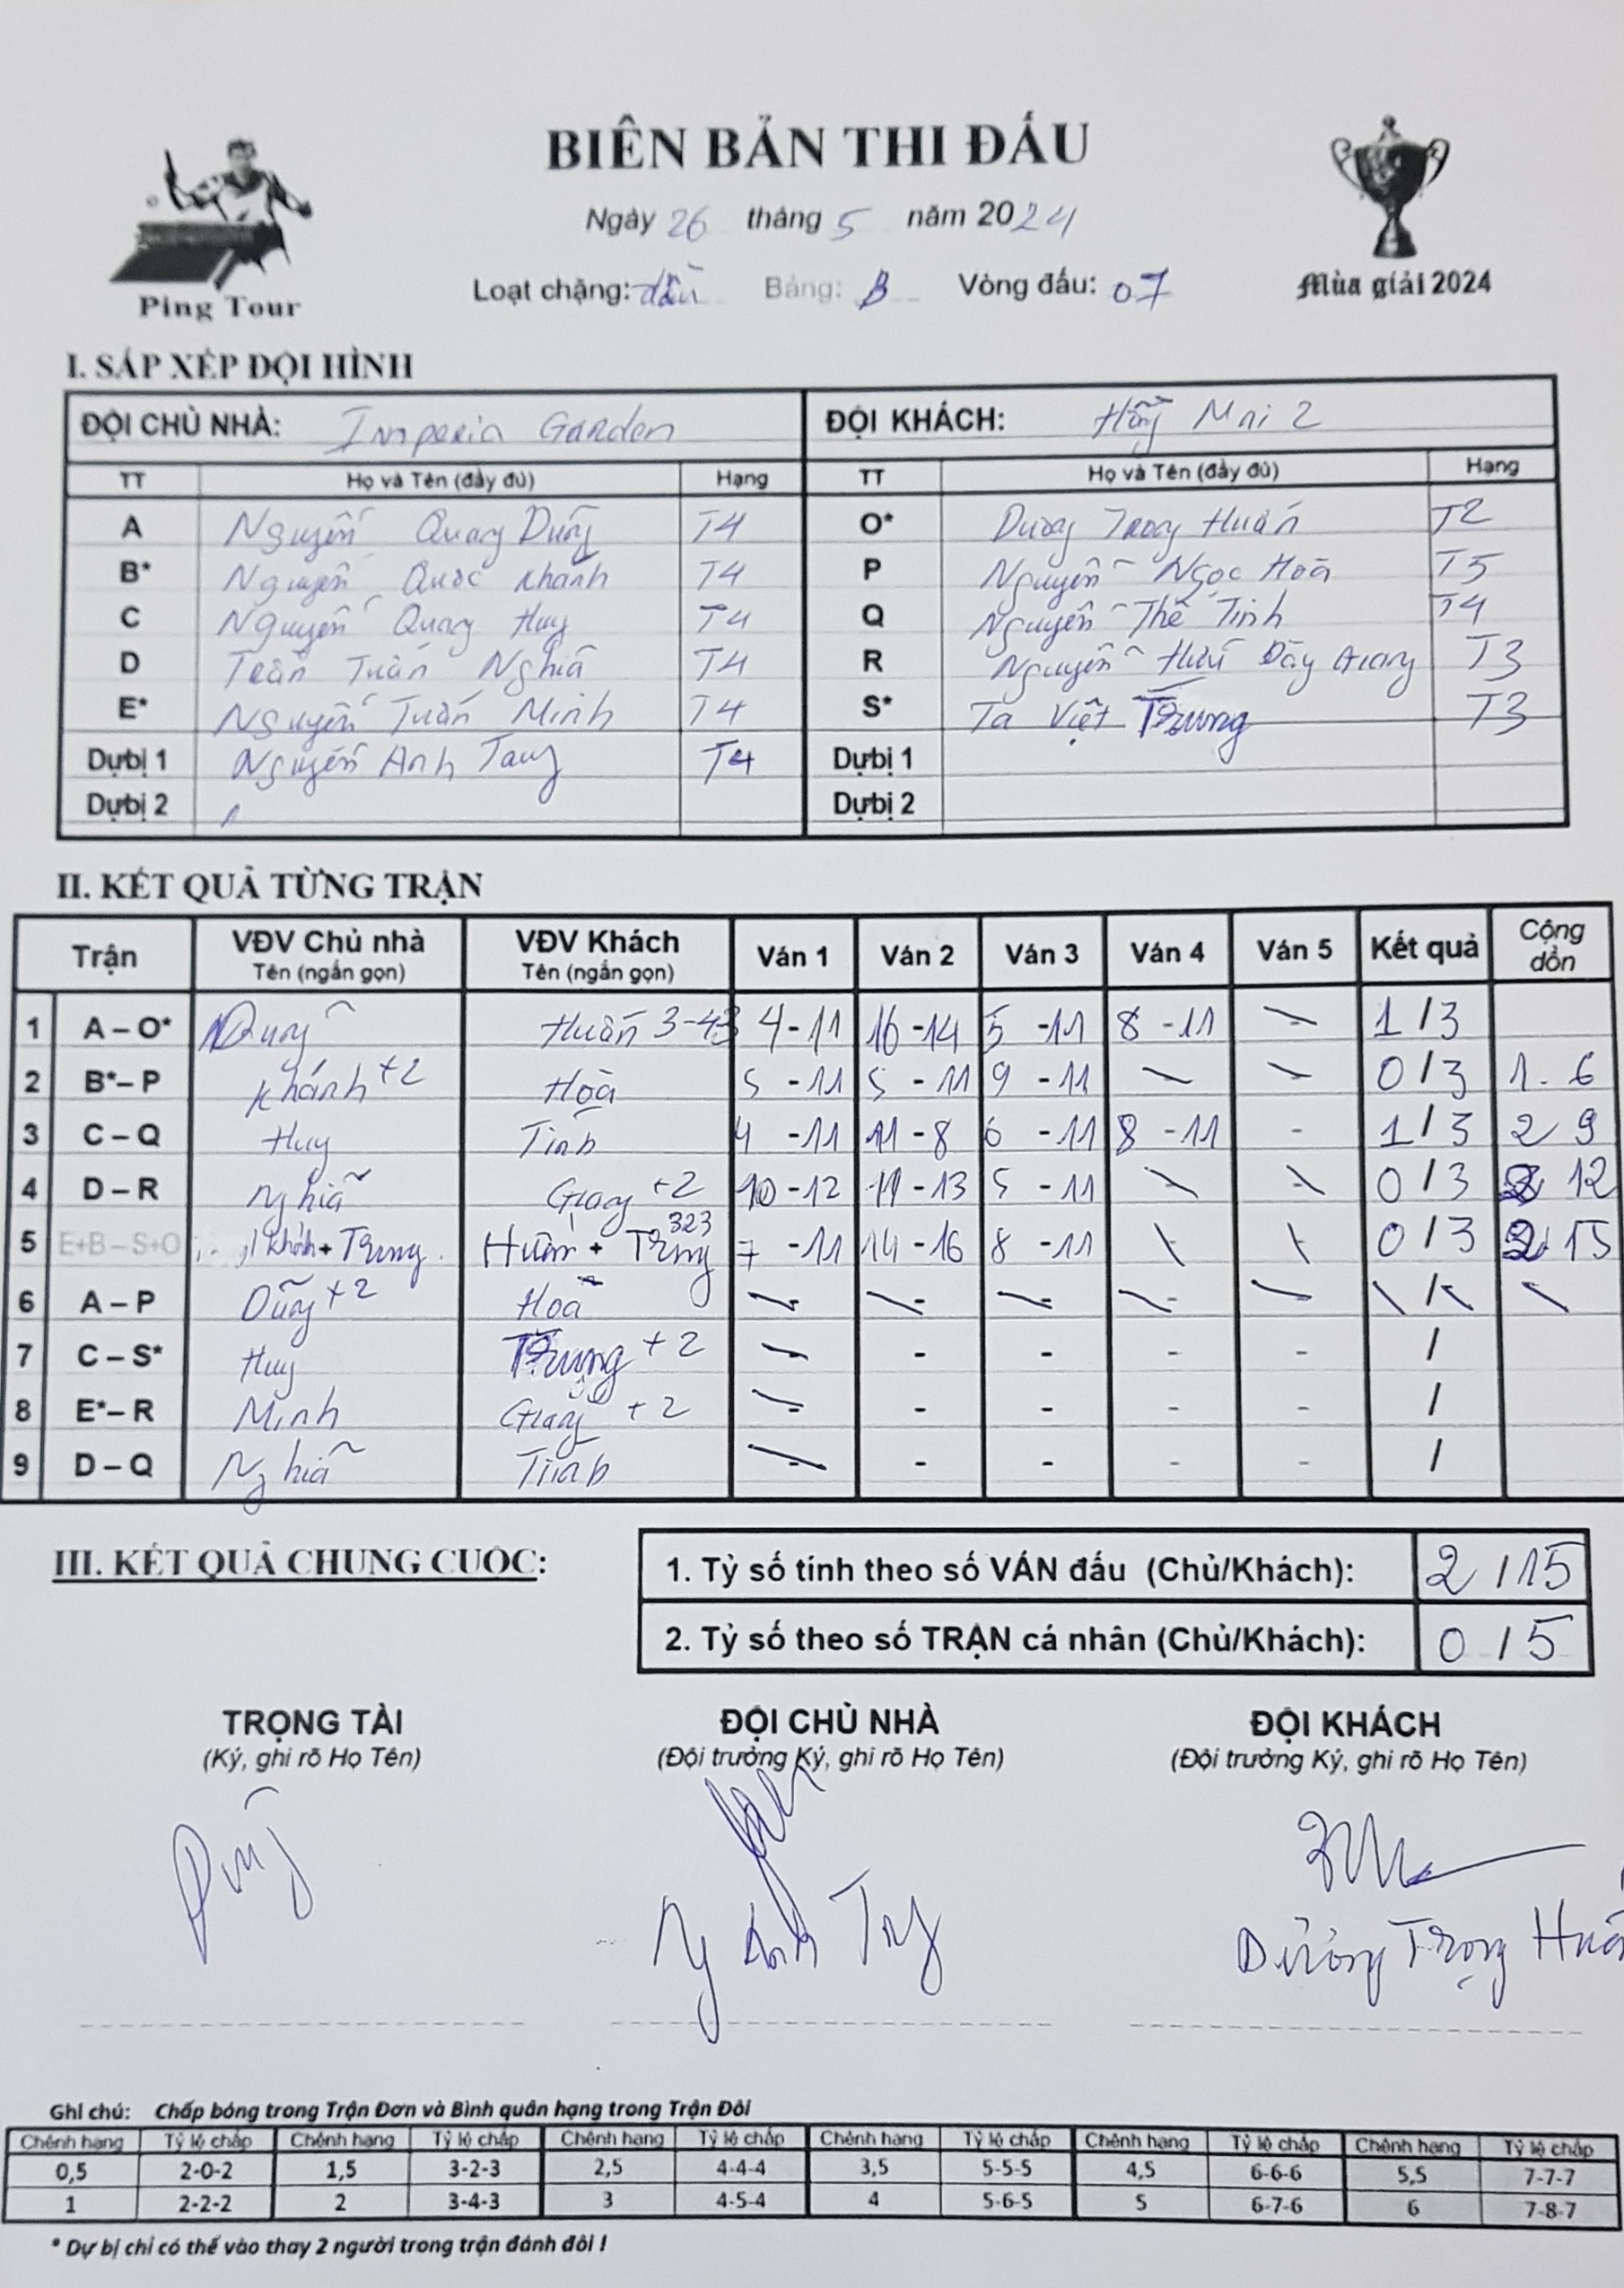 BIÊN BẢN THI ĐẤU
Ngày 26 tháng 5 năm 2024
Ping Tour
Loạt chặng: đầu Bảng: B Vòng đấu: 07
Mùa giải 2024
I. SẮP XẾP ĐỘI HÌNH
ĐỘI CHỦ NHÀ: Imperia Garden ĐỘI KHÁCH: Mai 2
TT Họ và Tên (đầy đủ) Hạng TT Họ và Tên (đầy đủ) Hạng
A Nguyễn Quang Dũng T4 O* Dương Trọng Huấn T2
B* Nguyễn Quốc Khánh T4 P Nguyễn Ngọc Hoà T5
C Nguyễn Quang Huy T4 Q Nguyễn Thế Tinh T4
D Trần Tuấn Nghĩa T4 R Nguyễn Hữu Giang T3
E* Nguyễn Tuấn Minh T4 S* Tạ Việt Trung T3
Dự bị 1 Nguyễn Anh T4 Dự bị 1
Dự bị 2 Dự bị 2
II. KẾT QUẢ TỪNG TRẬN
Trận VĐV Chủ nhà Tên (ngắn gọn) VĐV Khách Tên (ngắn gọn) Ván 1 Ván 2 Ván 3 Ván 4 Ván 5 Kết quả Cộng dồn
1 A – O* Dũng Huấn 3-43 4-11 16-14 5-11 8-11 - 1/3
2 B*– P Khánh +2 Hoà 5-11 5-11 9-11 - - 0/3 1. 6
3 C – Q Huy Tinh 4-11 11-8 6-11 8-11 - 1/3 2 9
4 D – R Nghĩa Giang +2 10-12 11-13 5-11 - - 0/3 2 12
5 E+B – S+O Khánh + Trung Huấn + Trung 323 7-11 14-16 8-11 0/3 2 15
6 A – P Dũng +2 Hoà - - - - - /
7 C – S* Huy Trung +2 - - - - - /
8 E*– R Minh Giang +2 - - - - - /
9 D – Q Nghĩa Tinh - - - - - /
III. KẾT QUẢ CHUNG CUỘC:
1. Tỷ số tính theo số VÁN đấu (Chủ/Khách): 2/15
2. Tỷ số theo số TRẬN cá nhân (Chủ/Khách): 0/5
TRỌNG TÀI ĐỘI CHỦ NHÀ ĐỘI KHÁCH
(Ký, ghi rõ Họ Tên) (Đội trưởng Ký, ghi rõ Họ Tên) (Đội trưởng Ký, ghi rõ Họ Tên)
Dũng
Ng Anh
Dương Trọng Huấ
Ghi chú: Chấp bóng trong Trận Đơn và Bình quân hạng trong Trận Đôi
Chênh hạng Tỷ lệ chấp Chênh hạng Tỷ lệ chấp Chênh hạng Tỷ lệ chấp Chênh hạng Tỷ lệ chấp Chênh hạng Tỷ lệ chấp Chênh hạng Tỷ lệ chấp
0,5 2-0-2 1,5 3-2-3 2,5 4-4-4 3,5 5-5-5 4,5 6-6-6 5,5 7-7-7
1 2-2-2 2 3-4-3 3 4-5-4 4 5-6-5 5 6-7-6 6 7-8-7
* Dự bị chỉ có thể vào thay 2 người trong trận đánh đôi !